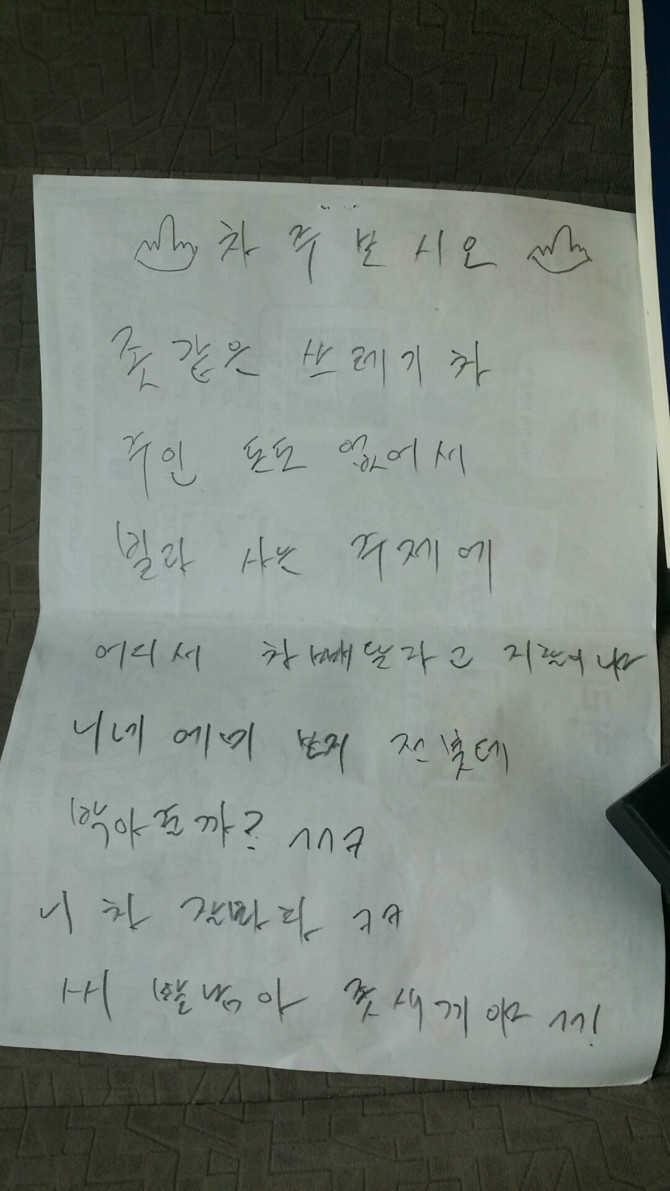 차 주 보 시 오
좆 같은 쓰레기 차
주인 돈도 없어서
빌라 사는 주제에
어디서 차 빼달라고 지랄이냐
니네 에미 보지 전봇대
박아줄까? ㄱㄱㅋ
니 차 잘봐라 ㅋㅋ
씨발놈아 좆새끼야